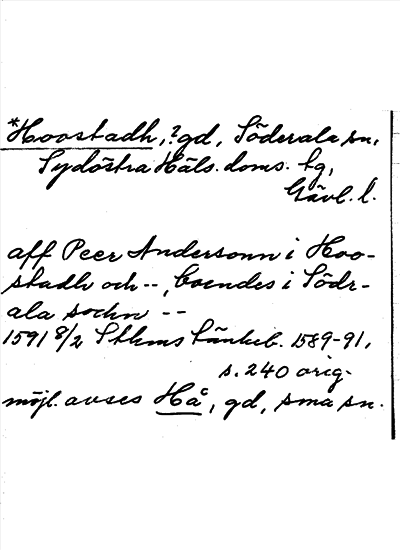 *Hoostadh, ?gd, Söderala sn,
Sydöstra Häls. doms. tg,
Gävl. l.
aff Peer Andersonn i Hoo-
stadh och --, boendes i Södr-
ala sochn --
1591 8/2 Sthms tänkeb. 1589-91,
s. 240 orig.
möjl. avses Hå, gd, sma sn.